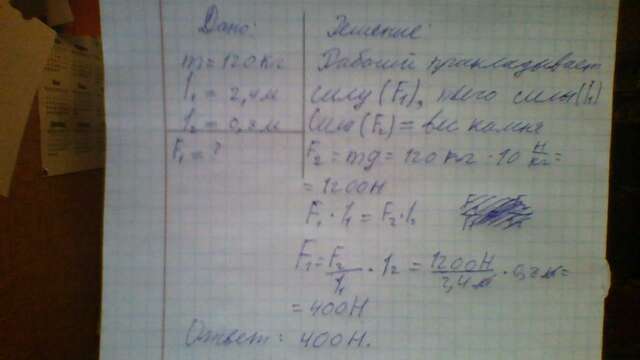 Дано:
Решение:
m = 120 кг
l₁ = 2,4 м
l₂ = 0,8 м
F₁ = ?
Рабочий прикладывает
силу (F₁), плечо силы (l₁)
Сила (F₂) = вес камня
F₂ = mg = 120 кг · 10 Н/кг =
= 1200 Н
F₁ · l₁ = F₂ · l₂
F₁ = F₂/l₁ · l₂ = 1200 Н/2,4 м · 0,8 м =
= 400 Н
Ответ: 400 Н.